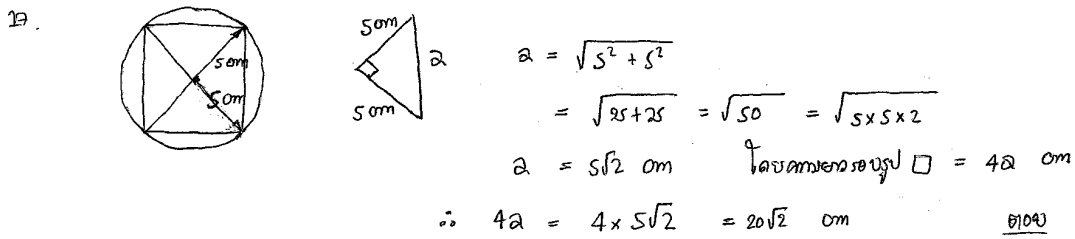 17.
5 cm
5 cm
5 cm
5 cm
a
a = √5² + 5²
= √25+25 = √50 = √5×5×2
a = 5√2 cm โดยความยาวรอบรูป □ = 4a cm
∴ 4a = 4 × 5√2 = 20√2 cm ตอบ